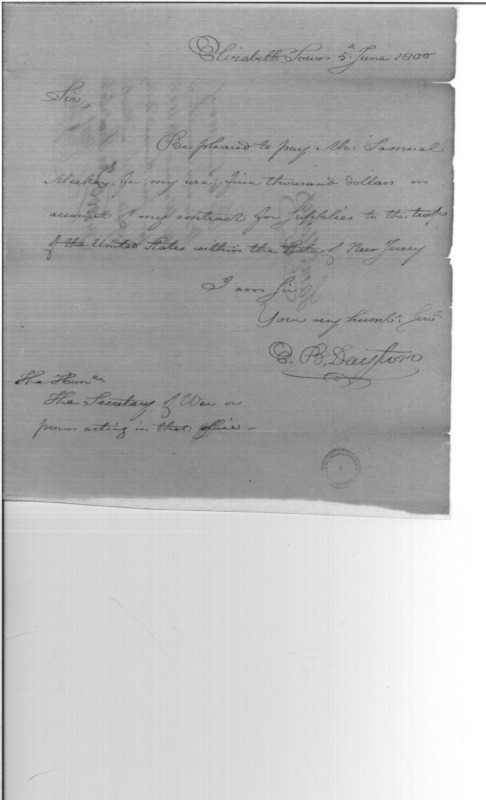 Elizabeth Town 5th June 1800
Sir,
Be pleased to pay Mr. Samuel
for my use, five thousand dollars on
account of my contract for Supplies to the troops
of the United States within the State of New Jersey
I am Sir
Your very humbe. Servt.
E. B. Dayton
The Honbe.
The Secretary of War or
person acting in that office –